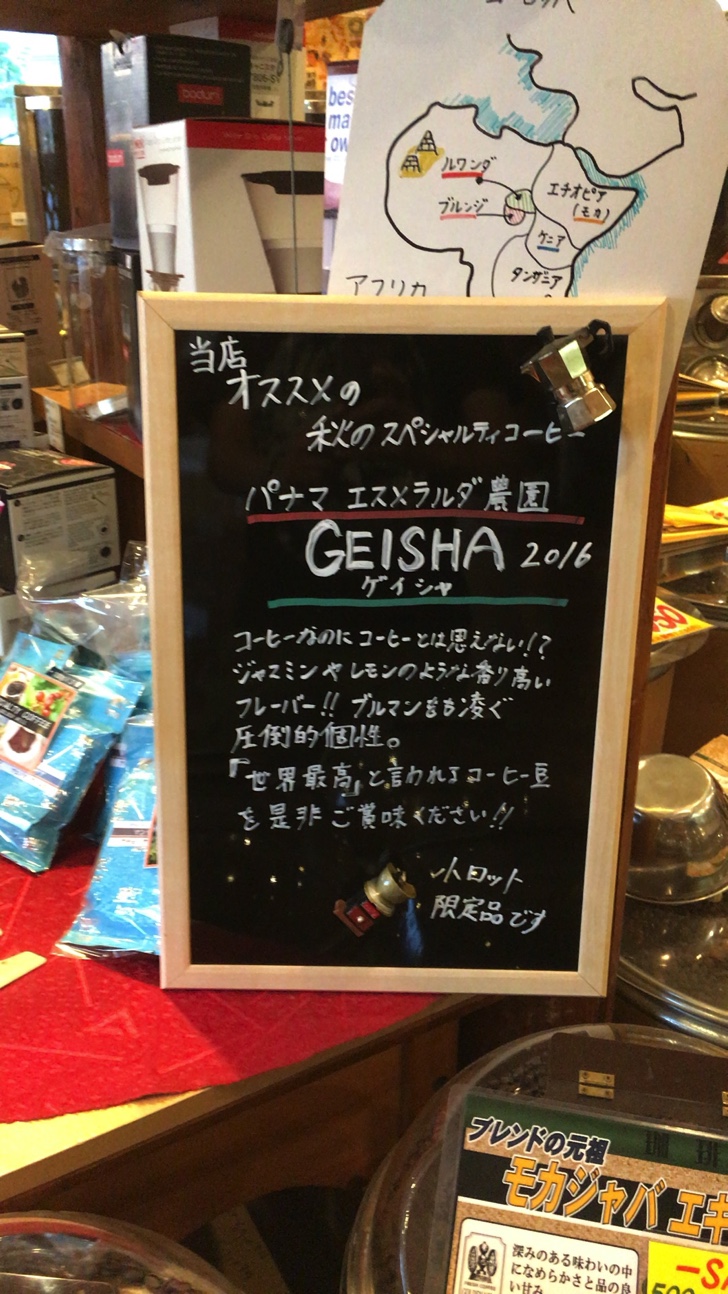 bodum
bes
ma
ow
ルワンダ
ブルンジ
エチオピア
(モカ)
ケニア
タンザニア
アフリカ
当店
オススメの
秋のスペシャルティコーヒー
パナマ エスメラルダ農園
GEISHA 2016
ゲイシャ
コーヒーなのにコーヒーとは思えない!?
ジャスミンやレモンのような香り高い
フレーバー!! ブルマンをも凌ぐ
圧倒的個性。
『世界最高』と言われるコーヒー豆
を是非ご賞味ください!!
小ロット
限定品です
ブレンドの元祖
モカジャバ エキ
深みのある味わいの中
になめらかさと品の良
い甘み